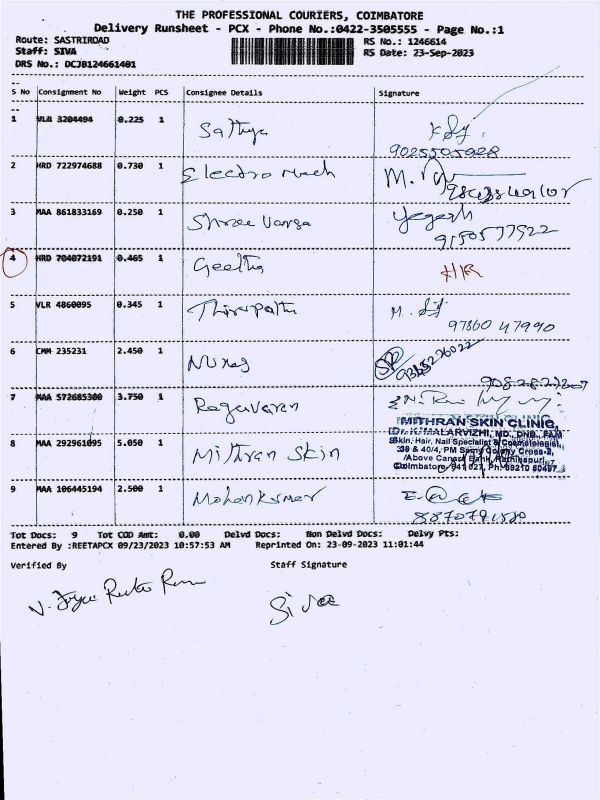 THE PROFESSIONAL COURIERS, COIMBATORE
Delivery Runsheet - PCX - Phone No.:0422-3505555 - Page No.:1
Route: SASTRIROAD
RS No.: 1246614
Staff: SIVA
RS Date: 23-Sep-2023
DRS No.: DCJB124661401
S No Consignment No Weight PCS Consignee Details Signature
1 VLR 3204494 0.225 1 Sathya
9025505928
2 HRD 722974688 0.730 1 Electro Mech M.
3 MAA 861833169 0.250 1 Shree Varsa Yegesh
9150577922
4 HRD 704072191 0.465 1 Geetha HR
5 VLR 4860095 0.345 1 Thirupathi M.
97860 47990
6 CMM 235231 2.450 1
7 MAA 572685300 3.750 1 Ragavaran
8 MAA 292961095 5.050 1 Mithran Skin
MITHRAN SKIN CLINIC,
Dr. K. MALARVIZHI, MD, DNB, FAM
Skin, Hair, Nail Specialist & Cosmetologist,
39 & 40/4, PM Samy Colony Cross-2,
Above Canara Bank, Rathinapuri,
Coimbatore-641 027, Ph:
9 MAA 106445194 2.500 1 Mohankumar
Tot Docs: 9 Tot COD Amt: 0.00 Delvd Docs: Non Delvd Docs: Delvy Pts:
Entered By :REETAPCX 09/23/2023 10:57:53 AM Reprinted On: 23-09-2023 11:01:44
Verified By Staff Signature
Siva